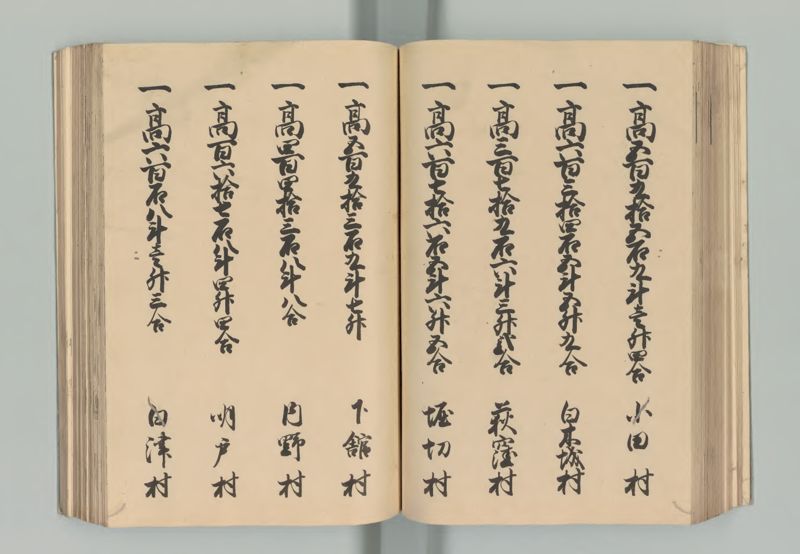 一高五百九拾五石九斗壱升四合 小田村
一高六百三拾四石五斗五升九合 白木城村
一高三百七拾九石六斗三升弐合 萩窪村
一高六百七拾六石五斗六升五合 堀切村
一高五百九拾三石九斗七升 下舘村
一高四百四拾三石八斗八合 円野村
一高百六拾七石八斗四升四合 明戸村
一高六百石八斗壱升三合 白津村